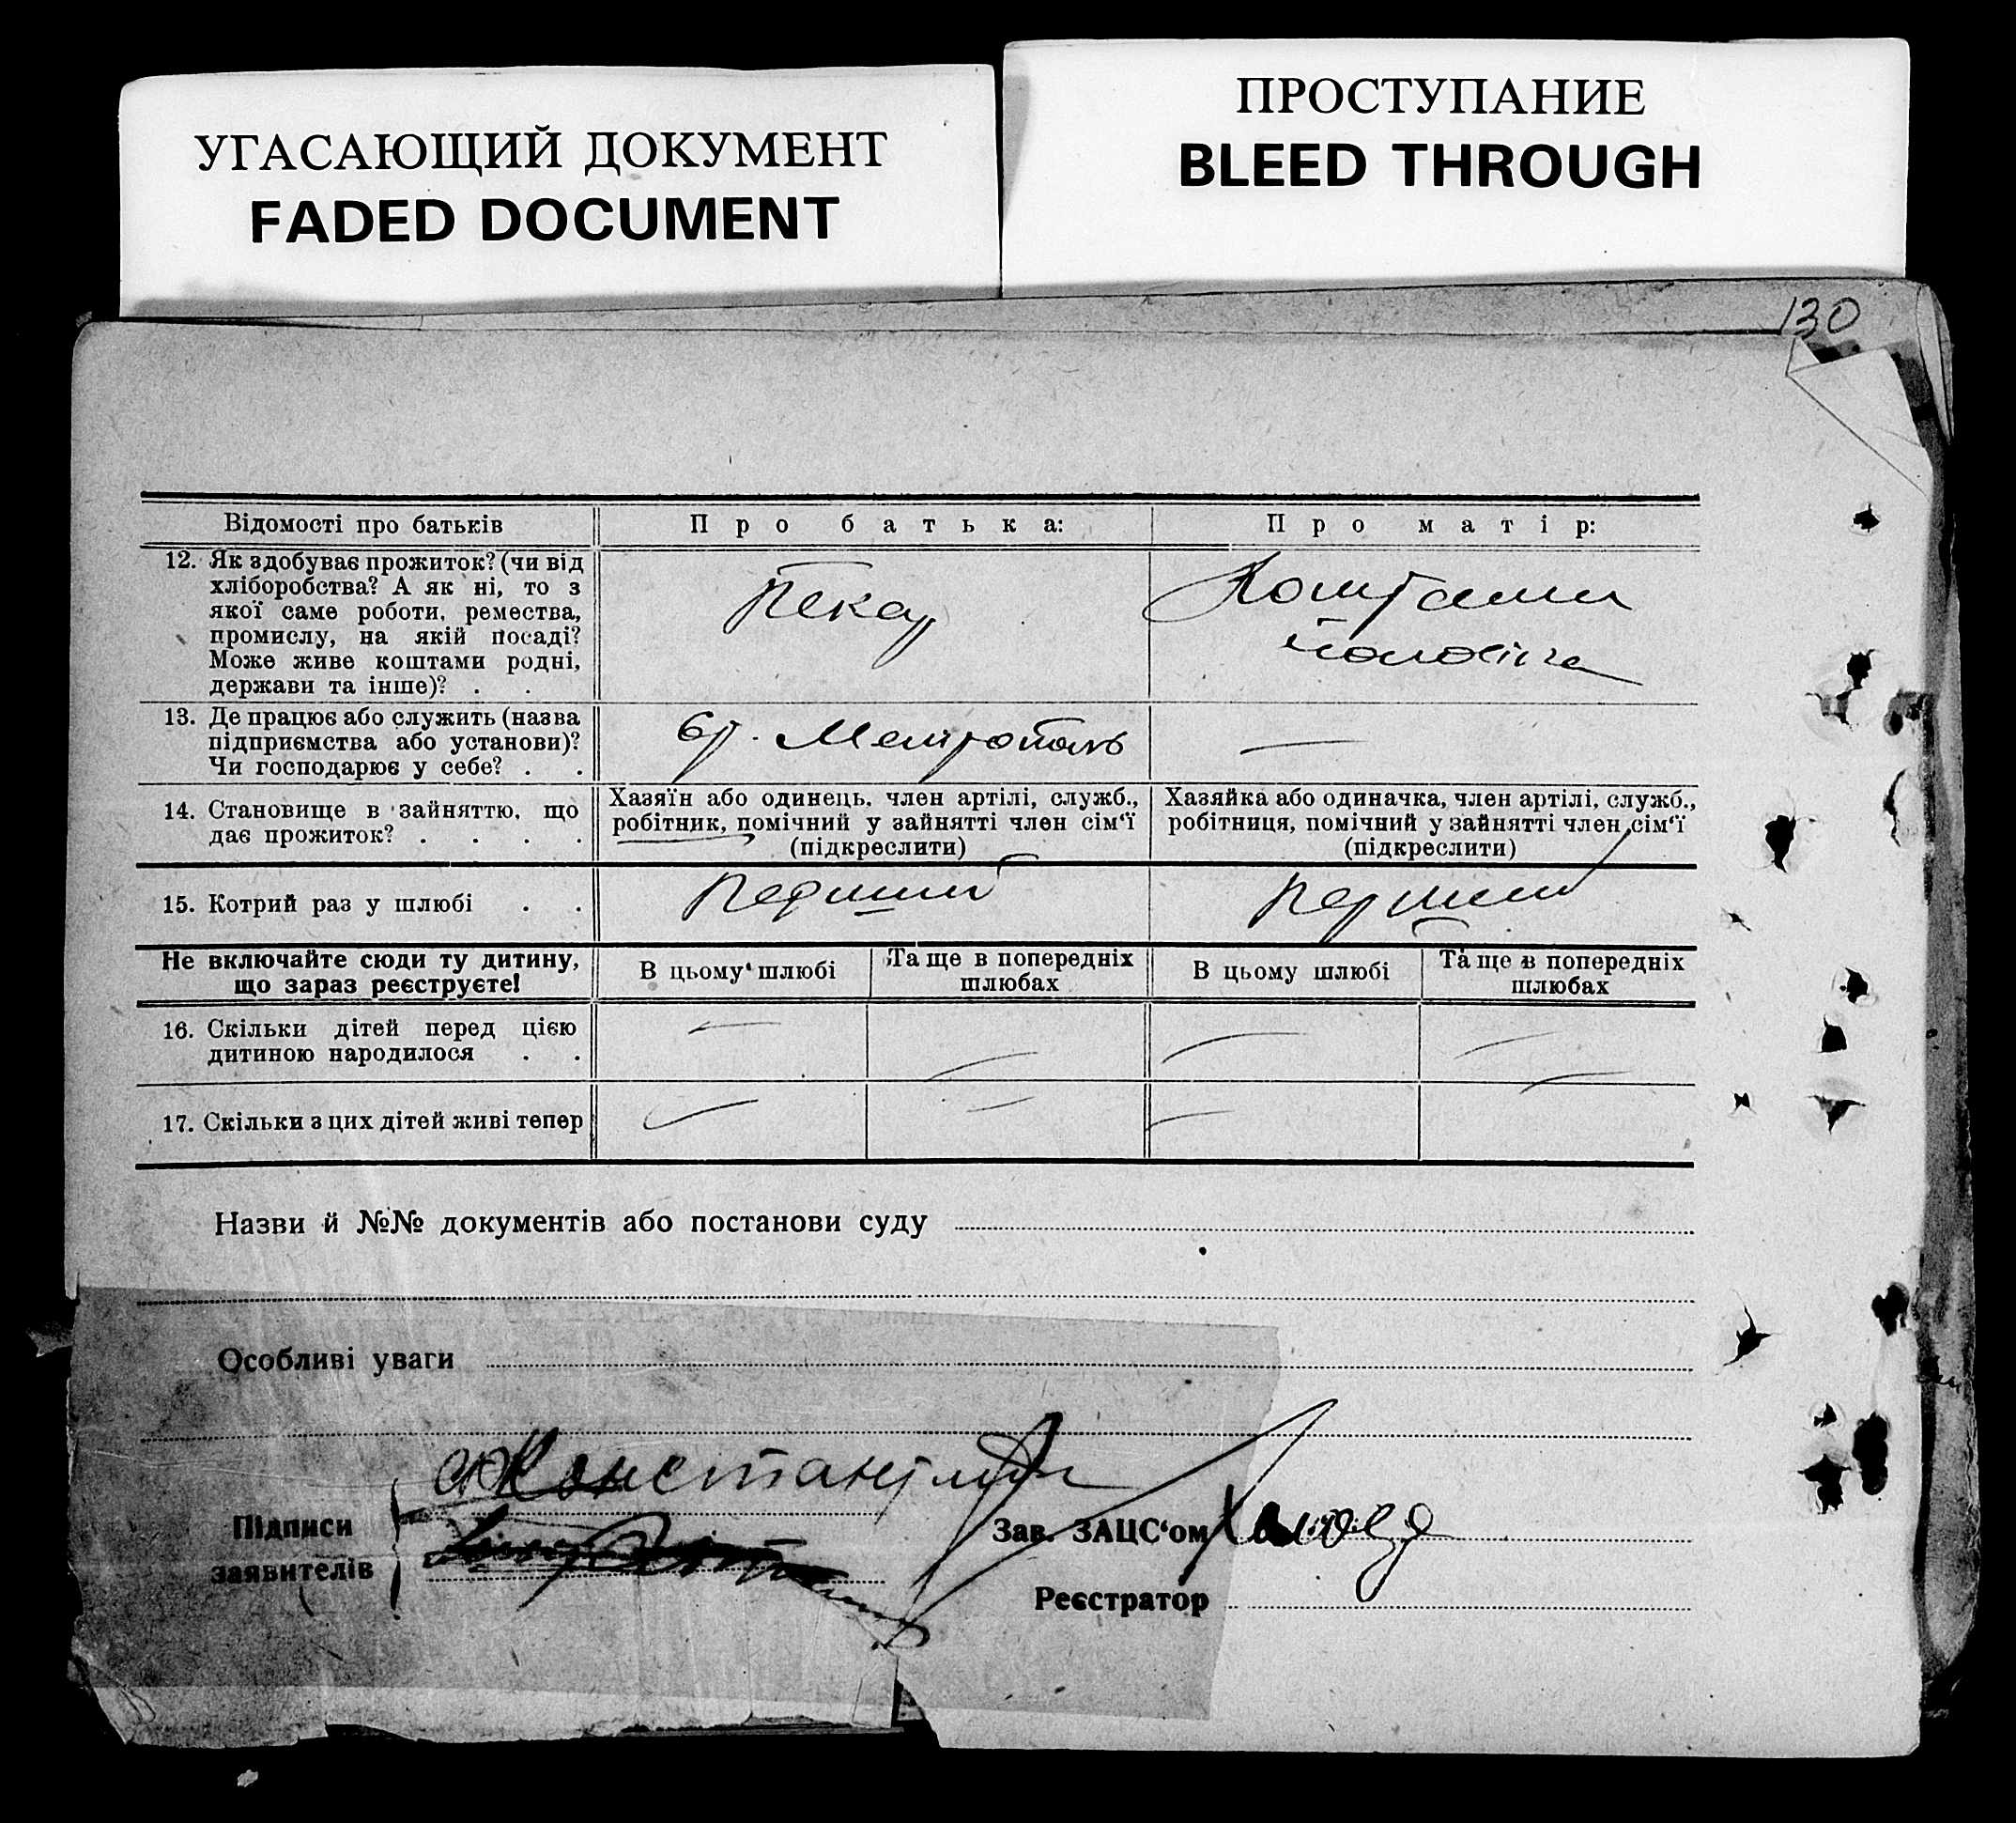 УГАСАЮЩИЙ ДОКУМЕНТ
FADED DOCUMENT
ПРОСТУПАНИЕ
BLEED THROUGH
130
Відомості про батьків
Про батька:
Про матір:
12. Як здобуває прожиток? (чи від
хліборобства? А як ні, то з
якої саме роботи, ремества,
промислу, на якій посаді?
Може живе коштами родні,
держави та інше)? . .
Пекар
Коштами
чоловіка
13. Де працює або служить (назва
підприємства або установи)?
Чи господарює у себе? . .
—
14. Становище в зайняттю, що
дає прожиток? . . . .
Хазяїн або одинець, член артілі, служб.,
робітник, помічний у зайнятті член сім‘ї
(підкреслити)
Хазяйка або одиначка, член артілі, служб.,
робітниця, помічний у зайнятті член сім‘ї
(підкреслити)
15. Котрий раз у шлюбі . .
Перший
Перший
Не включайте сюди ту дитину,
що зараз реєструєте!
В цьому шлюбі
Та ще в попередніх
шлюбах
В цьому шлюбі
Та ще в попередніх
шлюбах
16. Скільки дітей перед цією
дитиною народилося . .
— — — —
17. Скільки з цих дітей живі тепер
— — — —
Назви й №№ документів або постанови суду
Особливі уваги
Підписи
заявителів
Зав. ЗАЦС‘ом
Реєстратор